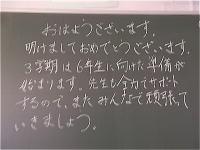 おはようございます。
明けましておめでとうございます。
3学期は6年生に向けた準備が
始まります。先生も全力でサポート
するので、またみんなで頑張って
いきましょう。